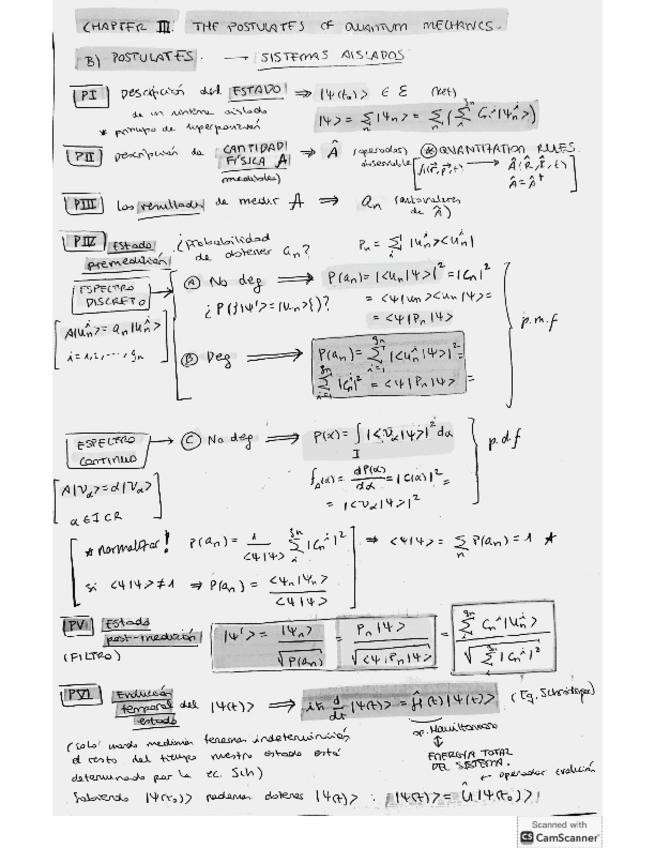 CHAPTER III. THE POSTULATES OF QUANTUM MECHANICS.
B) POSTULATES. → SISTEMAS AISLADOS
PI Descripción del ESTADO ⇒ |Ψ(t₀)> ∈ Ɛ (ket)
de un sistema aislado |Ψ> = Σₙ |Ψₙ> = Σₙ (Σᵢ^gₙ Cₙⁱ |uₙⁱ>)
* principio de superposición
PII Descripción de CANTIDAD FÍSICA A (medibles) ⇒ Â (operador) observable ⊛ QUANTIZATION RULES.
[A(r⃗, p⃗, t) → Â(R̂, P̂, t) Â = Â†]
PIII Los resultados de medir A ⇒ aₙ (autovalores de Â)
PIV Estado premedición ¿Probabilidad de obtener aₙ? Pₙ = Σᵢ |uₙⁱ><uₙⁱ|
ESPECTRO DISCRETO → Ⓐ No deg ⇒ P(aₙ) = |<uₙ|Ψ>|² = |Cₙ|²
¿P({|Ψ'> = |uₙ>})? = <Ψ|uₙ><uₙ|Ψ> =
= <Ψ|Pₙ|Ψ>
[A|uₙⁱ> = aₙ|uₙⁱ> i = 1, 2, ..., gₙ] p.m.f
Ⓑ Deg ⇒ P(aₙ) = Σᵢ₌₁^gₙ |<uₙⁱ|Ψ>|² =
Σᵢ₌₁^gₙ |Cₙⁱ|² = <Ψ|Pₙ|Ψ> =
ESPECTRO CONTINUO → Ⓒ No deg ⇒ P(α) = ∫_I |<v_α|Ψ>|² dα p.d.f
[A|v_α> = α|v_α> f_A(α) = dP(α)/dα = |C(α)|² =
α ∈ I ⊂ R] = |<v_α|Ψ>|²
* normalizar! P(aₙ) = 1/<Ψ|Ψ> Σᵢ^gₙ |Cₙⁱ|² ⇒ <Ψ|Ψ> = Σₙ P(aₙ) = 1 *
si <Ψ|Ψ> ≠ 1 ⇒ P(aₙ) = <Ψₙ|Ψₙ>/<Ψ|Ψ>
PV Estado post-medición (FILTRO) |Ψ'> = |Ψₙ>/√P(aₙ) = Pₙ|Ψ>/√<Ψ|Pₙ|Ψ> = Σᵢ^gₙ Cₙⁱ|uₙⁱ>/√Σᵢ^gₙ |Cₙⁱ|²
PVI Evolución temporal del estado |Ψ(t)> ⇒ iħ d/dt |Ψ(t)> = Ĥ(t)|Ψ(t)> (Eq. Schrödinger)
op. Hamiltoniano
↕
ENERGÍA TOTAL DEL SISTEMA.
(solo cuando medimos tenemos indeterminación
el resto del tiempo nuestro estado está
determinado por la ec. Sch) ← operador evolución
Sabiendo |Ψ(t₀)> podemos obtener |Ψ(t)> : |Ψ(t)> = Û|Ψ(t₀)>
Scanned with
CS CamScanner